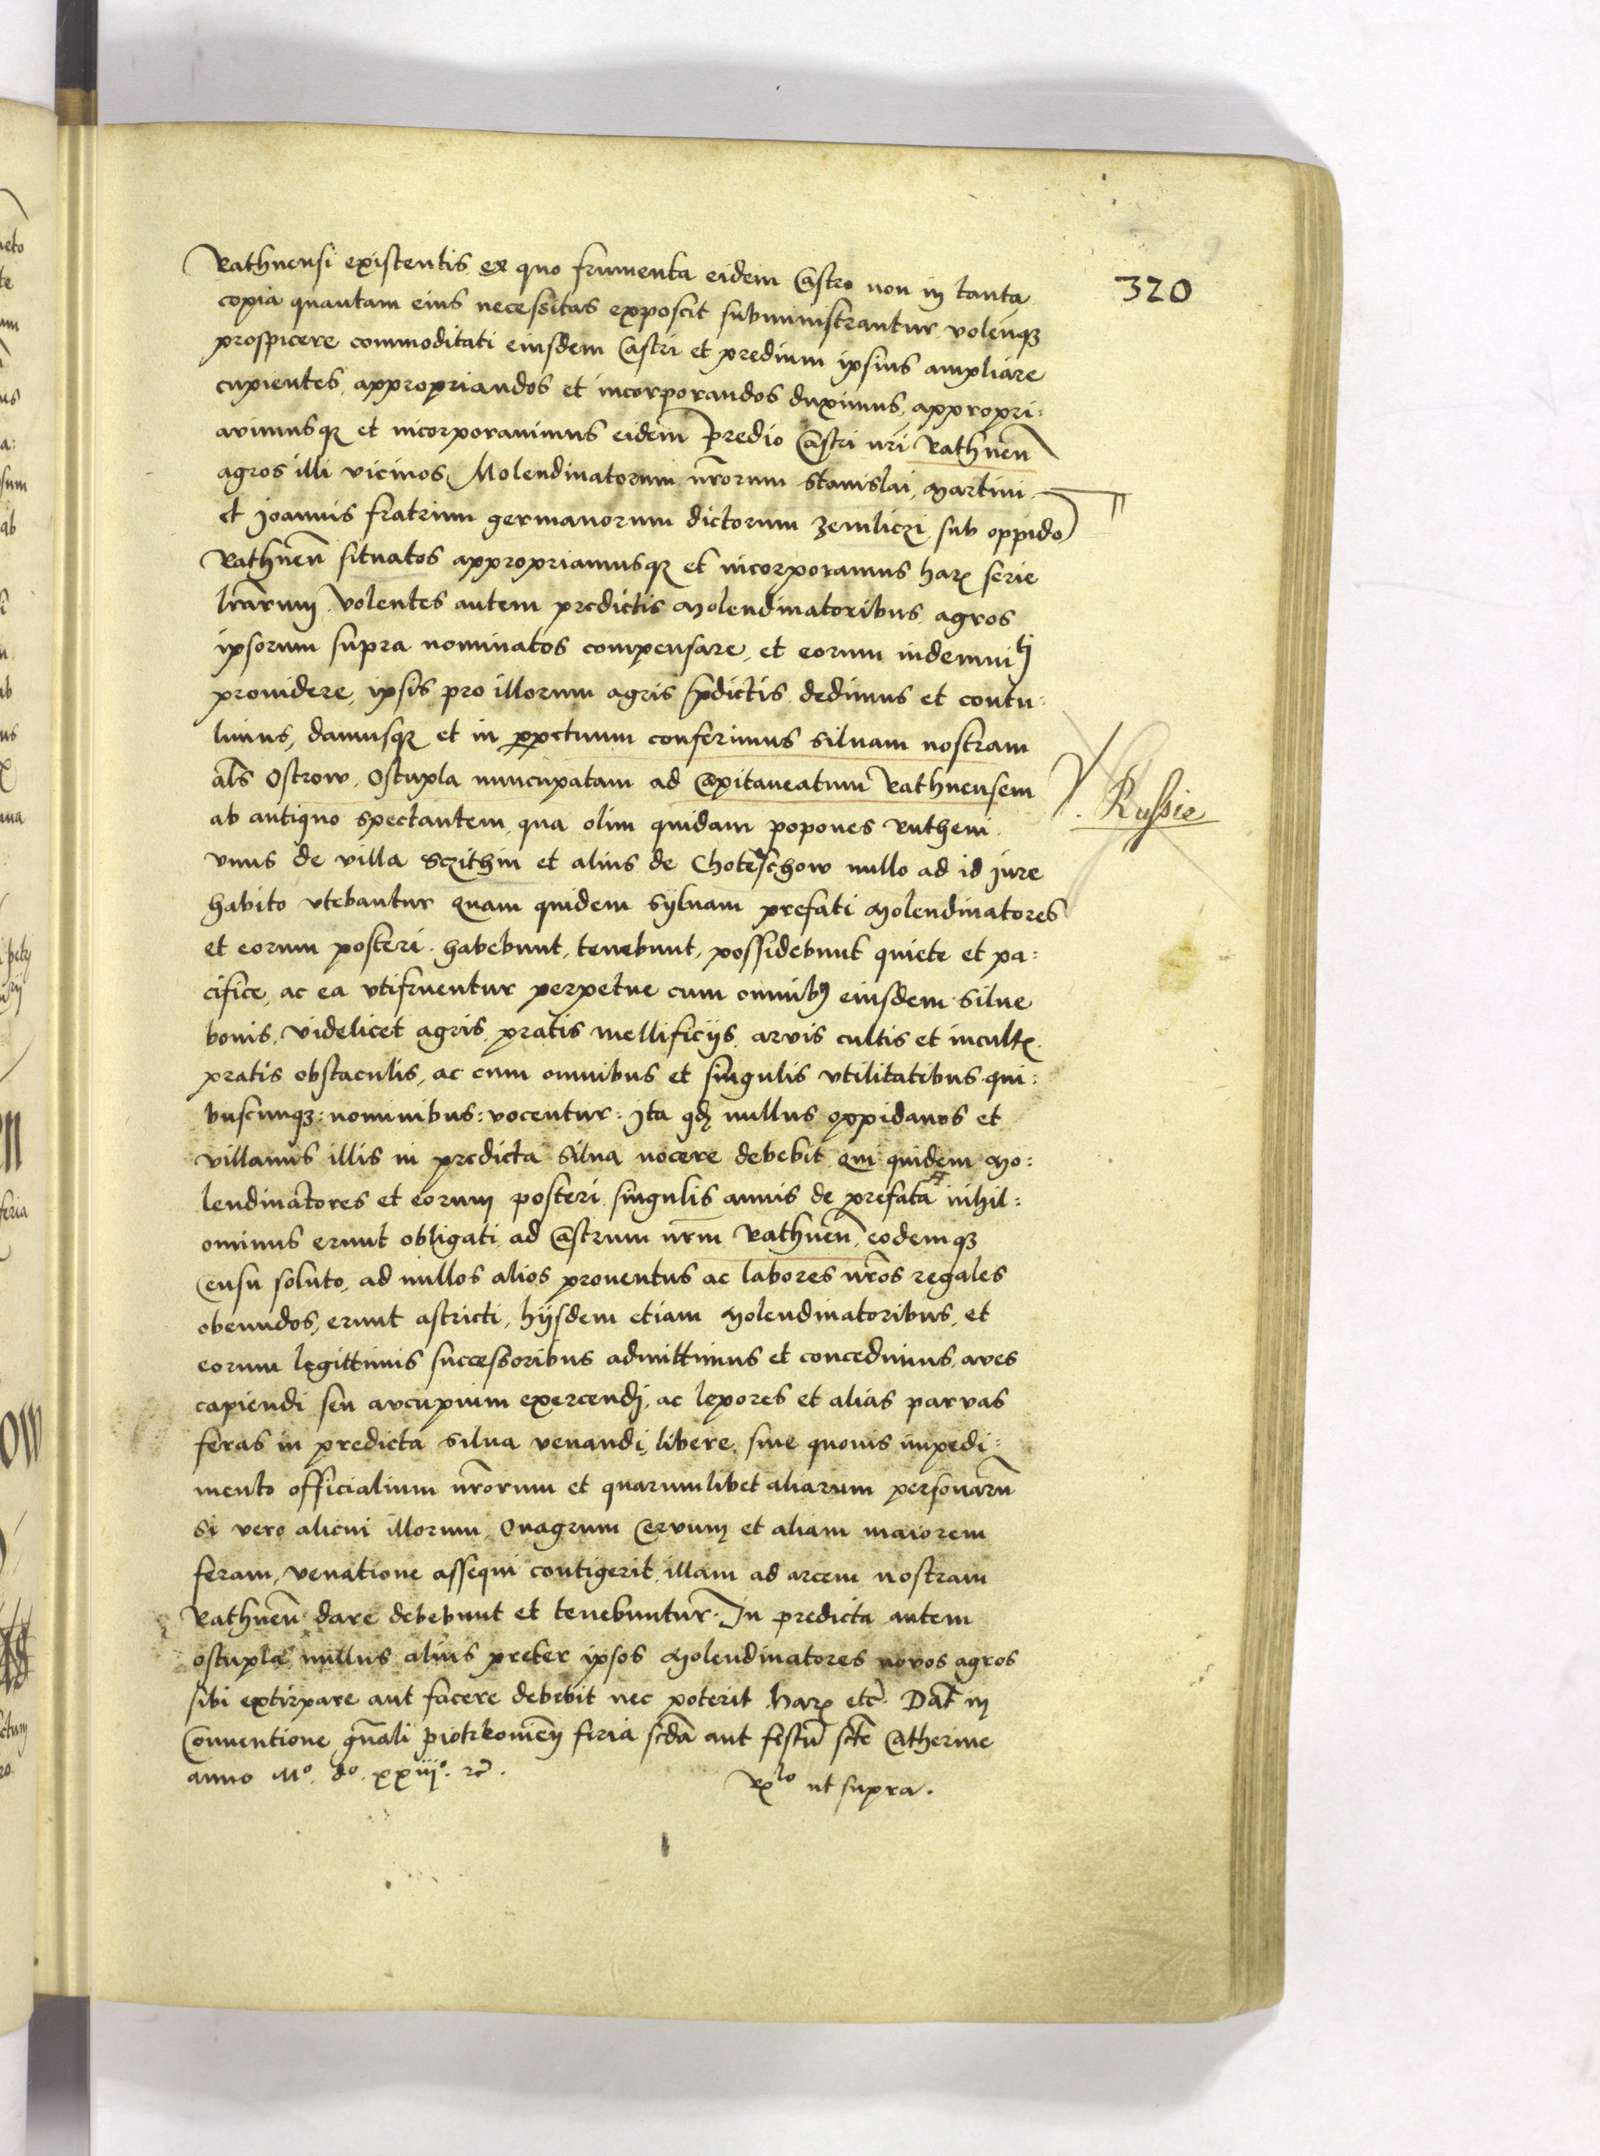 320
Rathnensi existentis ex quo frumenta eidem Castro non in tanta
copia quantam eius necessitas exposcit subministrantur volen̄tqꝫ
prospicere commoditati eiusdem Castri et predium ipsius ampliare
cupientes, appropriandos et incorporandos duximus, appropri:
avimusqꝫ et incorporavimus eidem Predio Castri nr̄i Rathnen̄
agros illi vicinos Molendinatorum nr̄orum Stanislai, Martini
et Joannis fratrum germanorum dictorum Zemliczi sub oppido
Rathnen̄ situatos appropriamusqꝫ et incorporamus harꝫ serie
lr̄arum. Volentes autem predictis Molendinatoribus agros
ipsorum supra nominatos compensare, et eorum indemnitj
providere, ipsis pro illorum agris p̄dictis dedimus et contu:
limus, damusqꝫ et in ꝑpetuum conferimus siluam nostram
al̄s Ostrow, Ostupla nuncupatam ad Capitaneatum Rathnensem
. Russie
ab antiquo spectantem, qua olim quidam popones Rutheni
vnus de villa Sczithin et alius de Choteschow nullo ad id jure
habito vtebantur quam quidem syluam prefati Molendinatores
et eorum posteri habebunt, tenebunt, possidebunt quiete et pa:
cifice, ac ea vtifruentur perpetue cum omnibꝰ eiusdem silue
bonis, videlicet agris, pratis mellificijs, arvis cultis et incultꝭ
pratis obstaculis, ac cum omnibus et singulis vtilitatibus qui:
buscunqꝫ: nominibus: vocentur: Ita qđ nullus oppidanus et
villanus illis in predicta silua nocere debebit qui quidem Mo:
lendinatores et eorum posteri singulis annis de prefata nihil:
ominus erunt obligati ad Castrum nr̄m Rathnen̄, eodemqꝫ
Censu soluto, ad nullos alios proventus ac labores nr̄os regales
obeundos, erunt astricti, hijsdem etiam Molendinatoribus, et
eorum legittimis successoribus admittimus et concedimus aves
capiendi seu aucupium exercendi, ac lepores et alias parvas
feras in predicta silua venandi, libere, sine quovis impedi:
mento officialium nr̄orum et quarumlibet aliarum personarū
Si vero alicui illorum, Onagrum Cervum et aliam maiorem
feram, venatione assequi contigerit, illam ad arcem nostram
Rathnen̄ dare debebunt et tenebuntur. In predicta autem
ostupla nullus alius preter ipsos Molendinatores novos agros
sibi extirpare aut facere debebit nec poterit harꝫ etc̄. Dat̄ in
Conventione gn̄ali Piotrkovien̄ feria scd̄a ant̄ festū sct̄e Catherine
anno Mº. dº. xxiiijº. rc̄.
Rꝫlº ut supra.